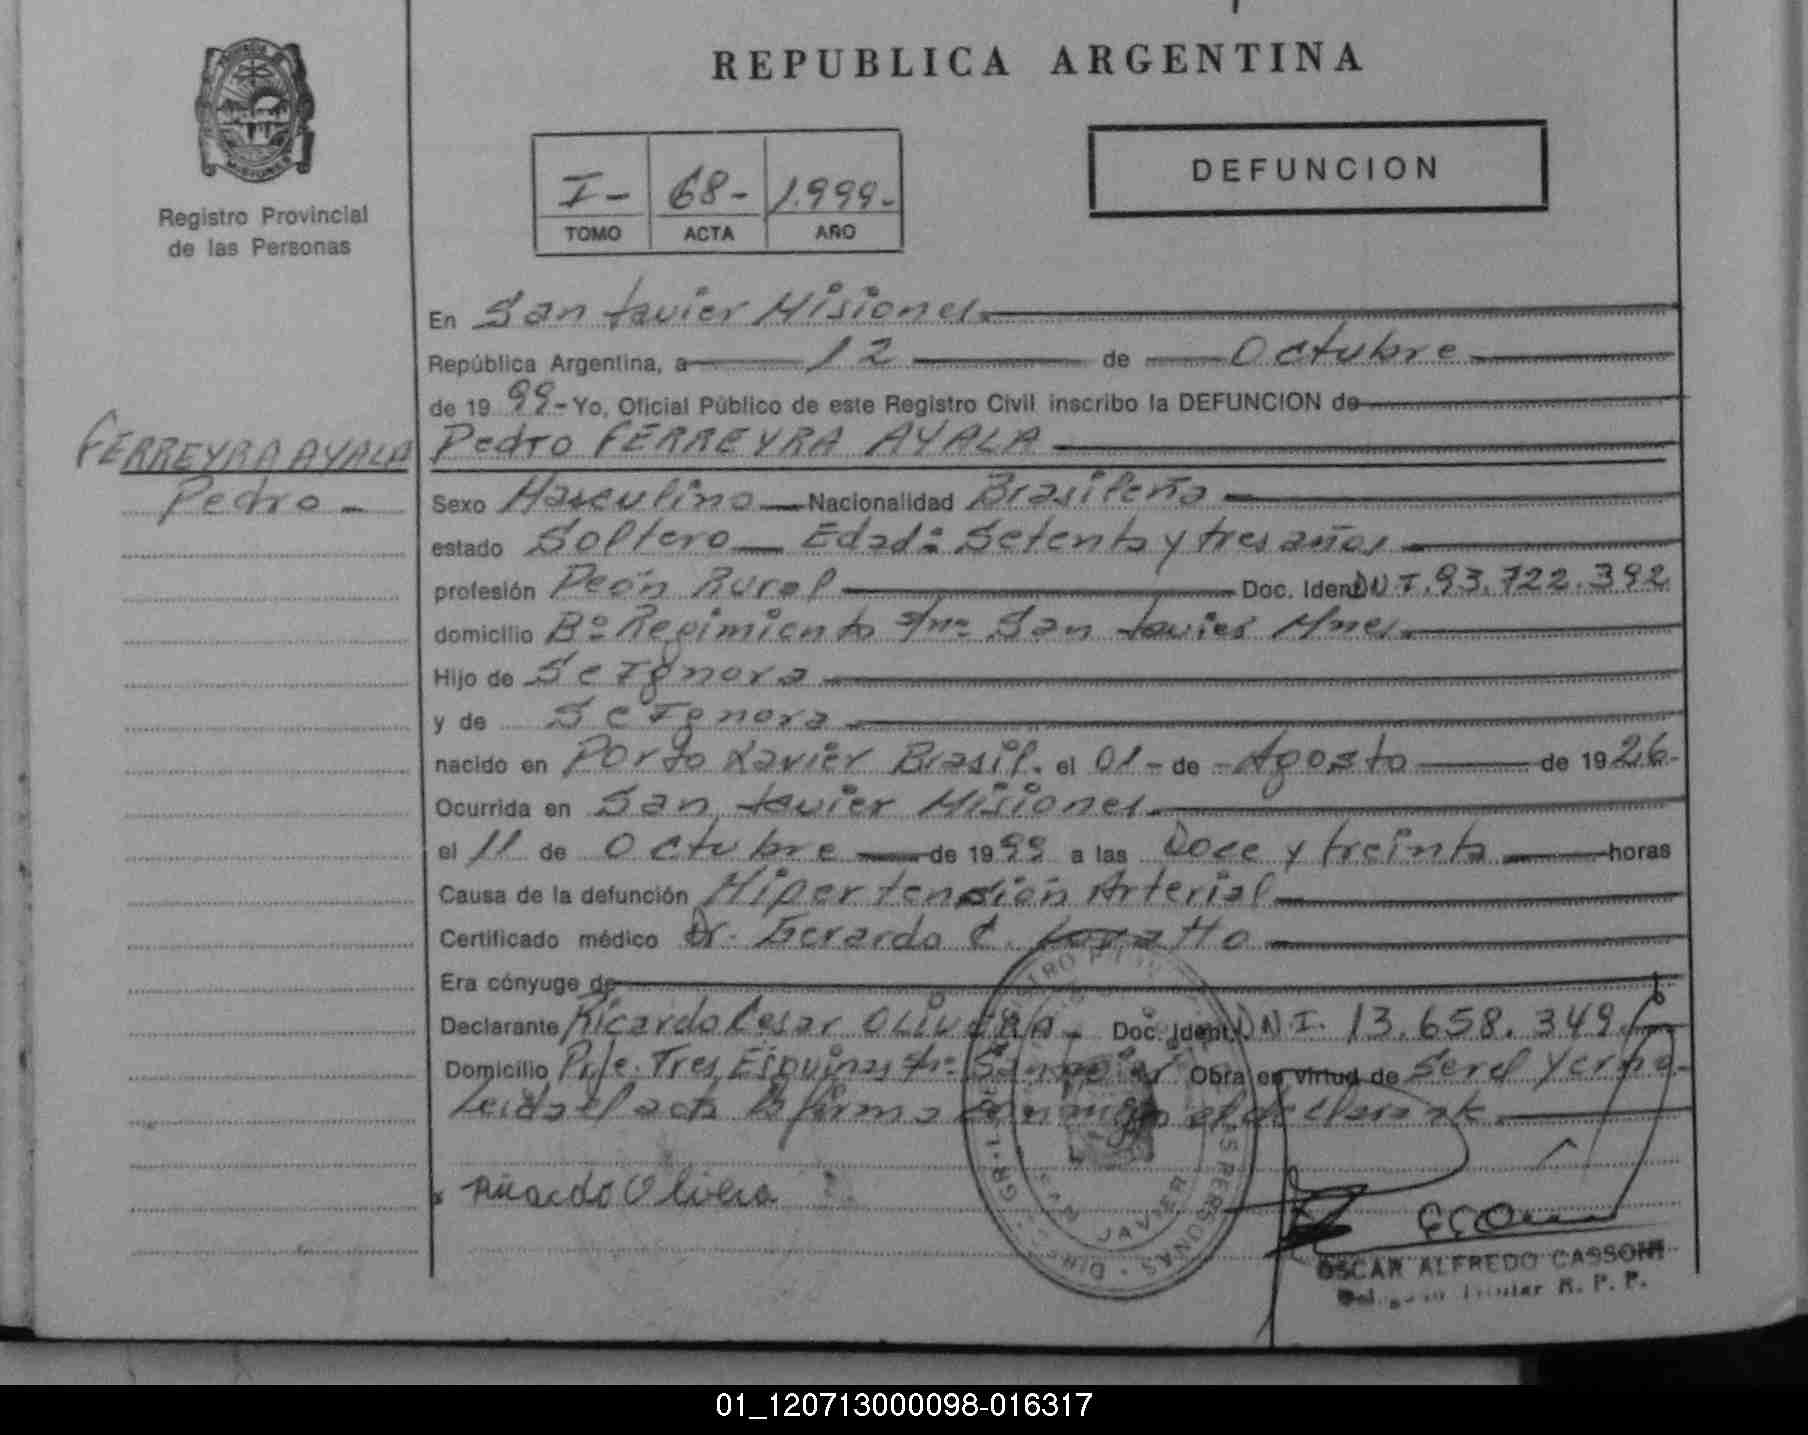 REPUBLICA ARGENTINA
DEFUNCION
Registro Provincial
de las Personas
I- 68- 1.999-
TOMO ACTA AÑO
En San Javier Misiones.
República Argentina, a 12 de Octubre
de 19 99- Yo, Oficial Público de este Registro Civil inscribo la DEFUNCION de
FERREYRA AYALA
Pedro -
Pedro FERREYRA AYALA
Sexo Masculino Nacionalidad Brasileña
estado Soltero Edad: Setenta y tres años
profesión Peón Rural Doc. Ident DNI. 93.722.392
domicilio Bº Regimiento San Javier Mnes.
Hijo de Se Ignora
y de Se Ignora
nacido en Porto Xavier Brasil. el 01- de Agosto de 19 26-
Ocurrida en San Javier Misiones.
el 11 de Octubre de 19 99 a las Doce y treinta horas
Causa de la defunción Hipertensión Arterial
Certificado médico Dr. Gerardo C.
Era cónyuge de
Declarante Ricardo Cesar OLIVERA - Doc. Ident. DNI. 13.658.349
Domicilio Pje. Tres Esquinas San Javier Obra en virtud de Ser el Yerno-
Leida el acta la firma conmigo el declarante
Ricardo Olivera
JAVIER
OSCAR ALFREDO CASSONI
Titular R. P. P.
01_120713000098-016317